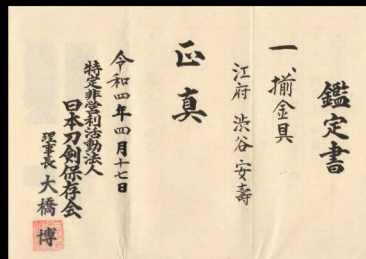 鑑定書
一、揃金具
江府 渋谷安壽
正真
令和四年四月十七日
特定非営利活動法人
日本刀剣保存会
理事長 大橋博